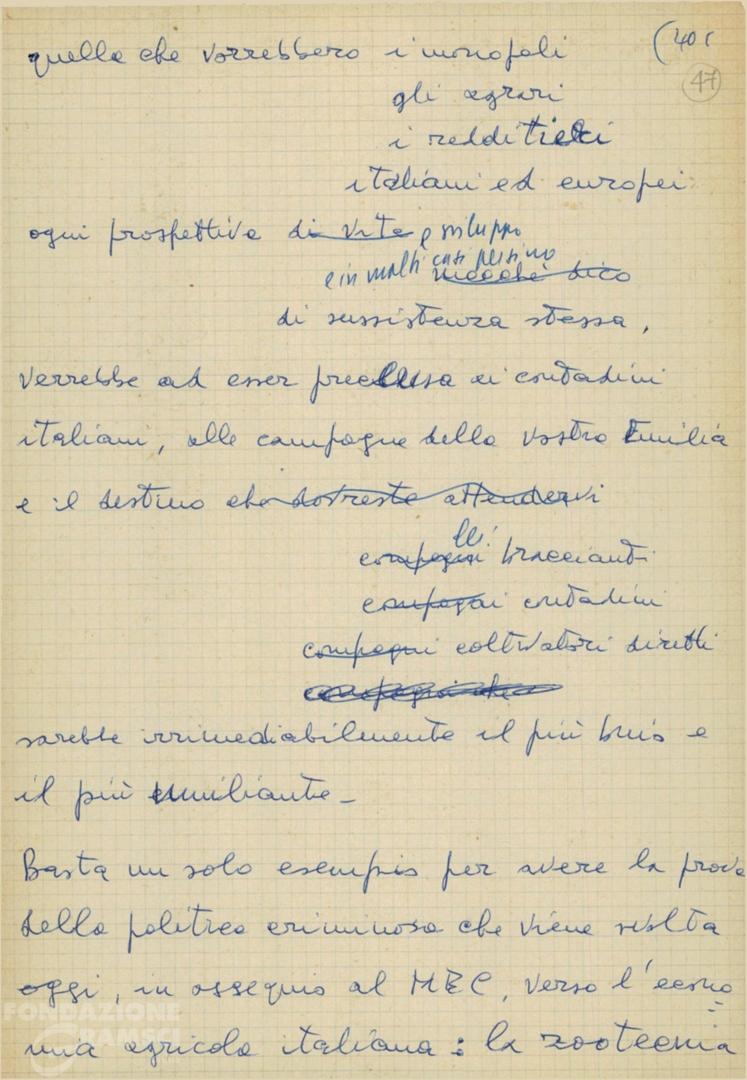 quella che vorrebbero i monopoli (40(
47
gli agrari
i redditieri
italiani ed europei
ogni prospettiva di vita e sviluppo
e in molti casi persino
dico
di sussistenza stessa,
verrebbe ad esser preclusa ai contadini
italiani, alle campagne della vostra Emilia
e il destino che dovreste attendervi
dei
compagni braccianti
compagni contadini
compagni coltivatori diretti
sarebbe irrimediabilmente il più buio e
il più umiliante –
Basta un solo esempio per avere la prova
della politica criminosa che viene svolta
oggi, in ossequio al MEC, verso l'econo=
mia agricola italiana: la zootecnia
FONDAZIONE
GRAMSCI